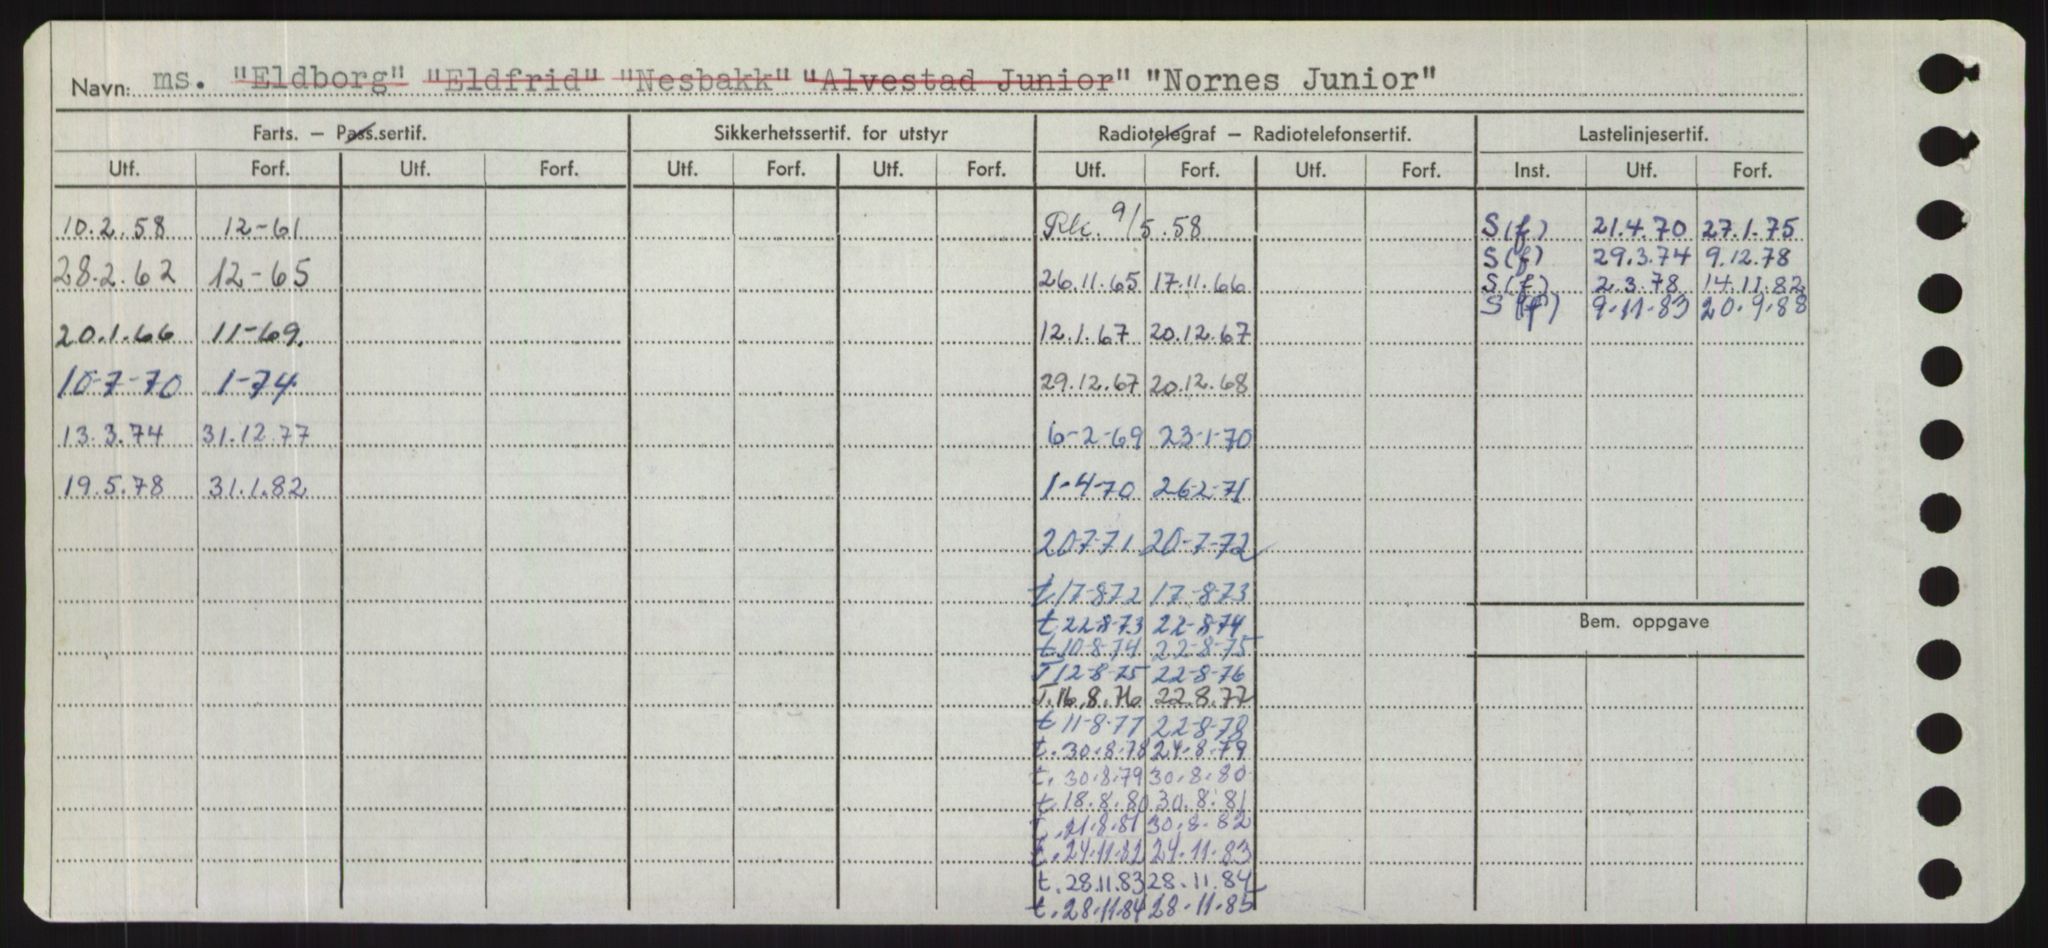 Navn: ms. "Eldborg" "Eldfrid" "Nesbakk" "Alvestad Junior" "Nornes Junior"
Farts. – Pass.sertif. Sikkerhetssertif. for utstyr Radiotelegraf – Radiotelefonsertif. Lastelinjesertif.
Utf. Forf. Utf. Forf. Utf. Forf. Utf. Forf. Utf. Forf. Utf. Forf. Inst. Utf. Forf.
10.2.58 12-61 9/5.58 S(f) 21.4.70 27.1.75
S(f) 29.3.74 9.12.78
28.2.62 12-65 26.11.65 17.11.66 S(f) 2.3.78 14.11.82
S(f) 9.11.83 20.9.88
20.1.66 11-69. 12.1.67 20.12.67
10-7-70 1-74. 29.12.67 20.12.68
13.3.74 31.12.77 6-2-69 23-1-70
19.5.78 31.1.82 1-4-70 26-2-71
20-7-71 20-7-72
t.17-8-72 17-8-73
t.22-8-73 22-8-74
Bem. oppgave
t.10-8-74 22-8-75
T 12-8-75 22-8-76
T.16.8.76 22.8.77
t 11-8-77 22-8-78
t.30.8.78 24.8.79
t.30.8.79 30.8.80
t.18.8.80 30.8.81
t.21.8.81 30.8.82
t.24.11.82 24.11.83
t.28.11.83 28.11.84
t.28.11.84 28.11.85